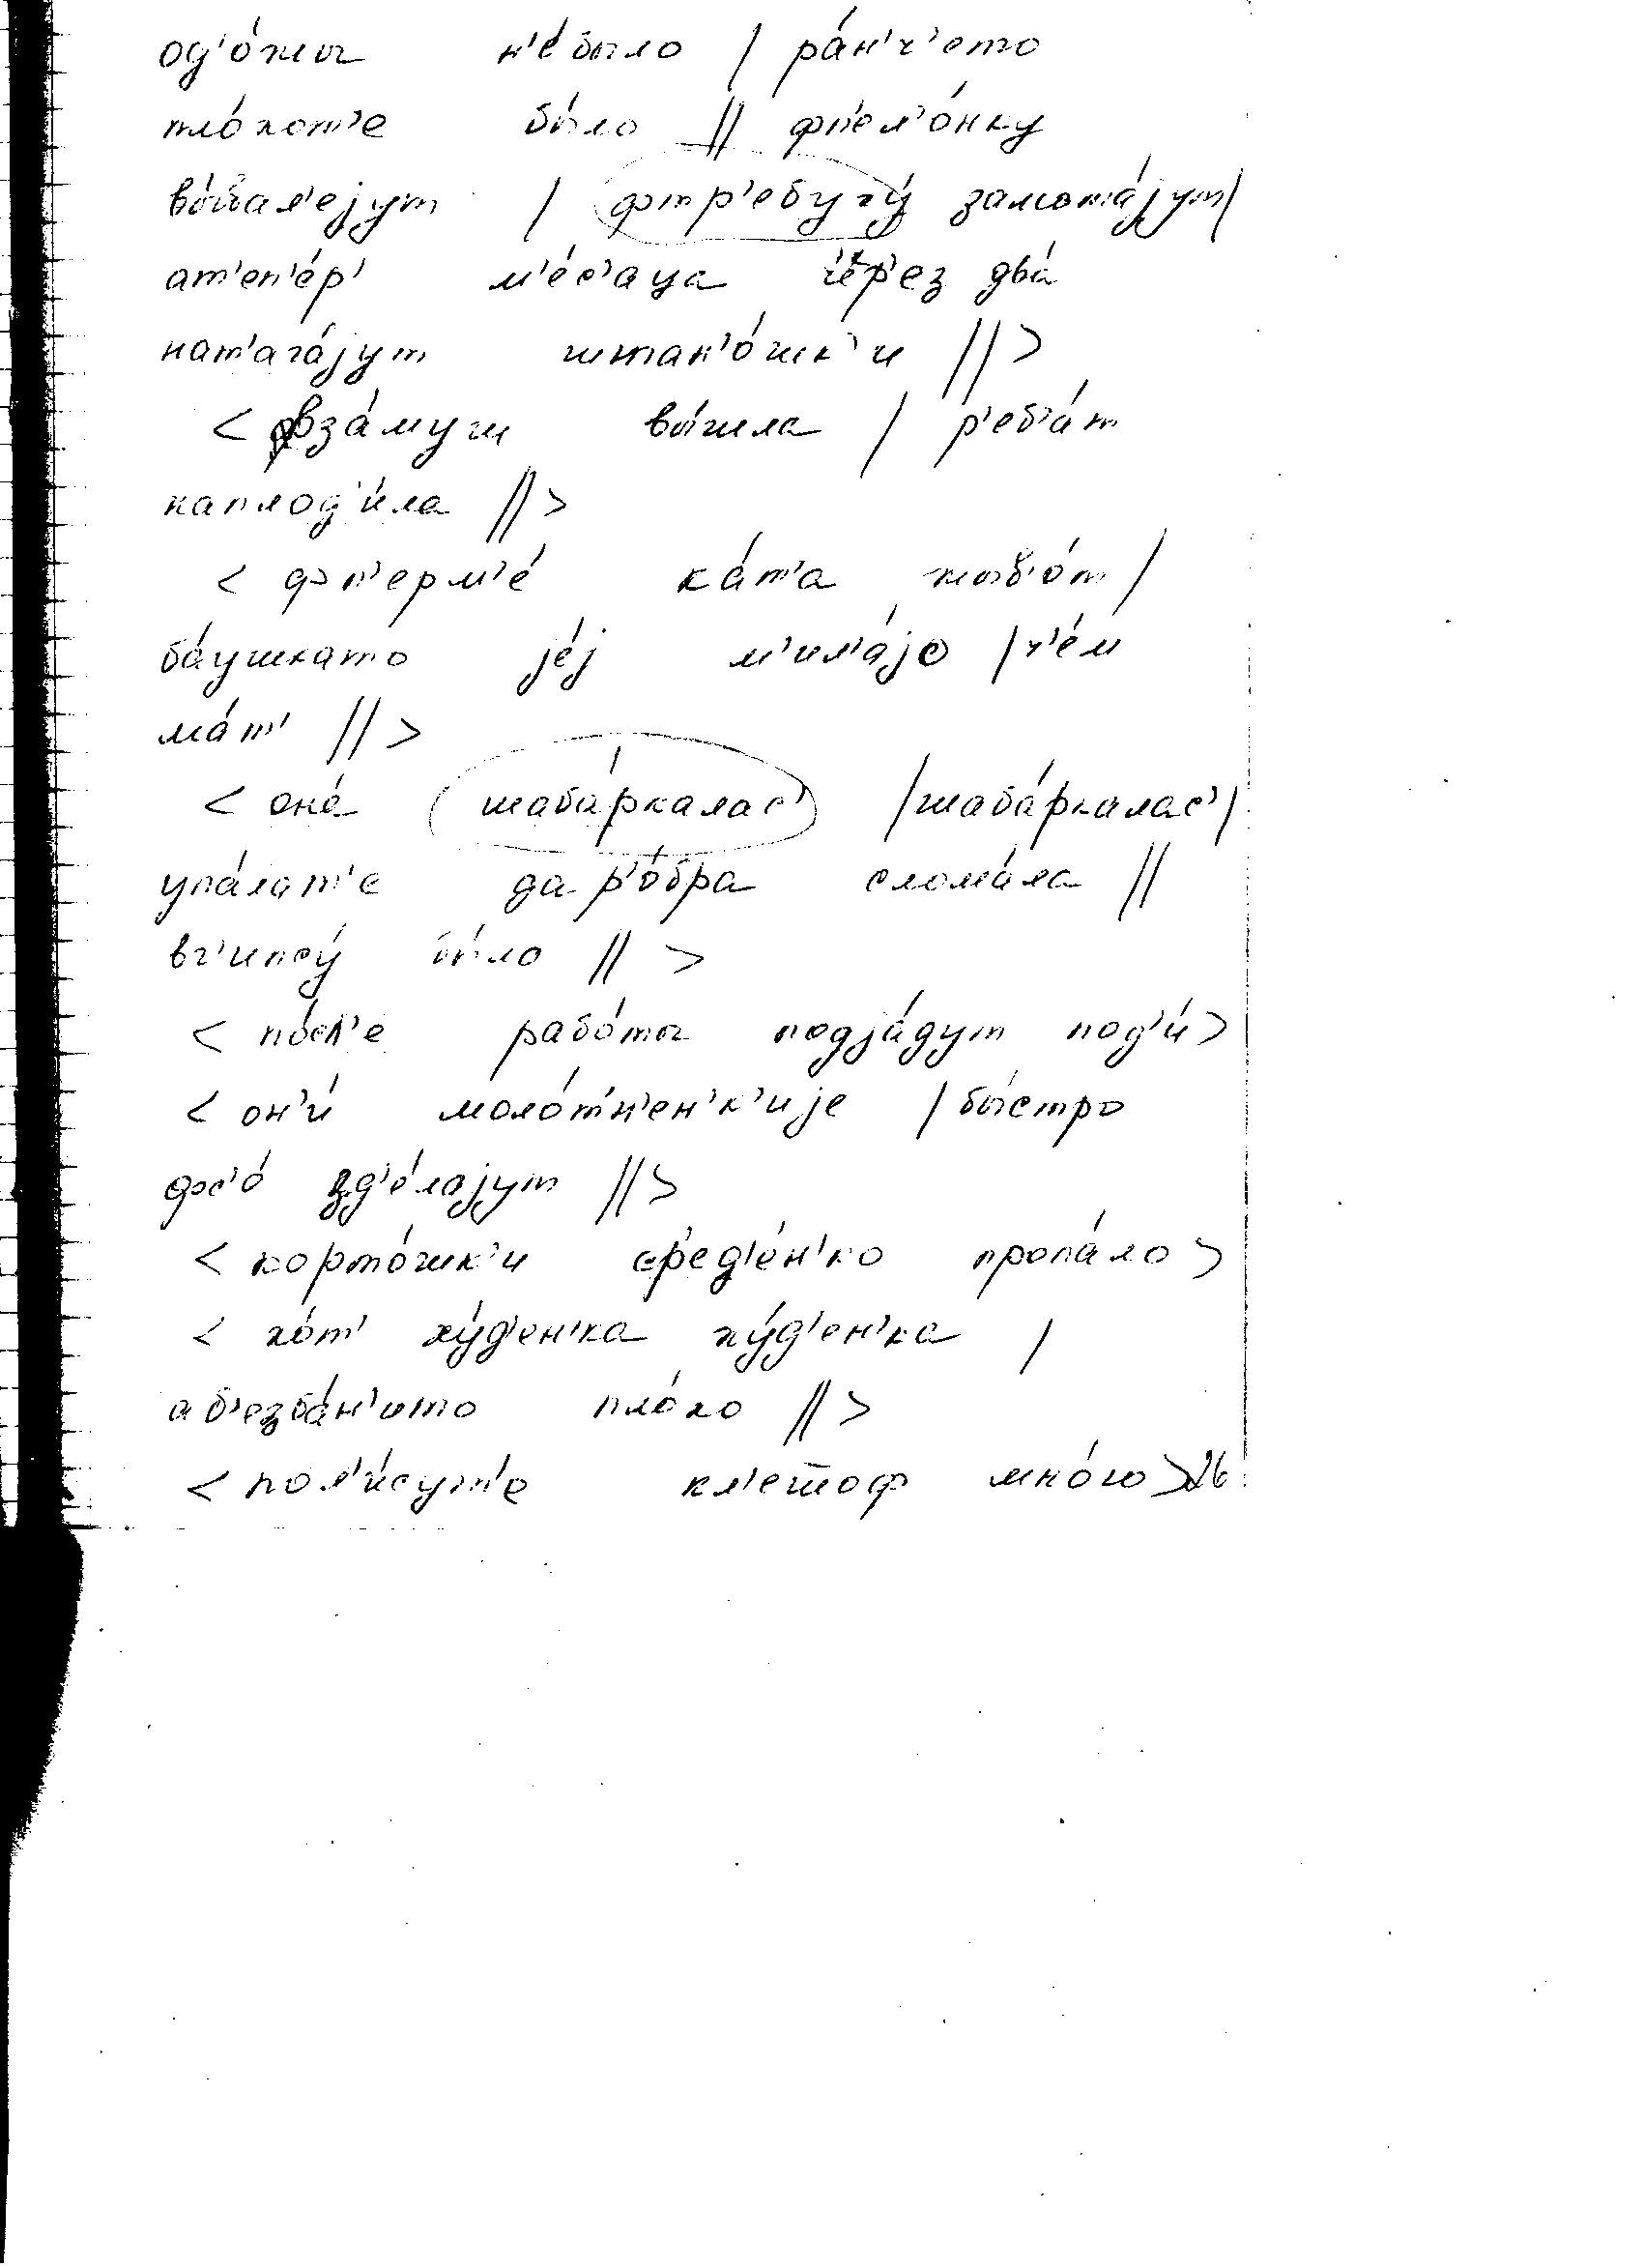 од'о́жы н'е́было / ра́н'ч'ето
пло́хот'е бы́ло // фп'ел'о́нку
вы́вал'еjут / фтр'ебухý замота́jут/
ат'еп'е́р' м'е́с'аца ч'е́р'ез два́
нат'ага́jут штан'о́шк'и // >
< вза́муш вы́шла / р'еб'а́т
наплод'и́ла // >
< фп'ерм'е́ ка́т'а жыв'о́т /
ба́ушкато jе́j м'ил'а́jо / ч'е́м
ма́т' // >
< она́ шаба́ркалас' / шаба́ркалас' /
упа́лат'е да р'о́бра слома́ла //
вг'ипсу́ бы́ло // >
< по́сл'е рабо́ты подjа́дут под'и́ >
< он'и́ моло́т'н'ен'к'иjе / бы́стро
фс'о́ зд'е́лаjут // >
< корто́шк'и ср'ед'е́н'ко пропа́ло >
< хо́т' ху́д'ен'ка ху́д'ен'ка /
аб'езба́н'ито пло́хо // >
< пол'и́сут'е кл'етоф мно́го > 26